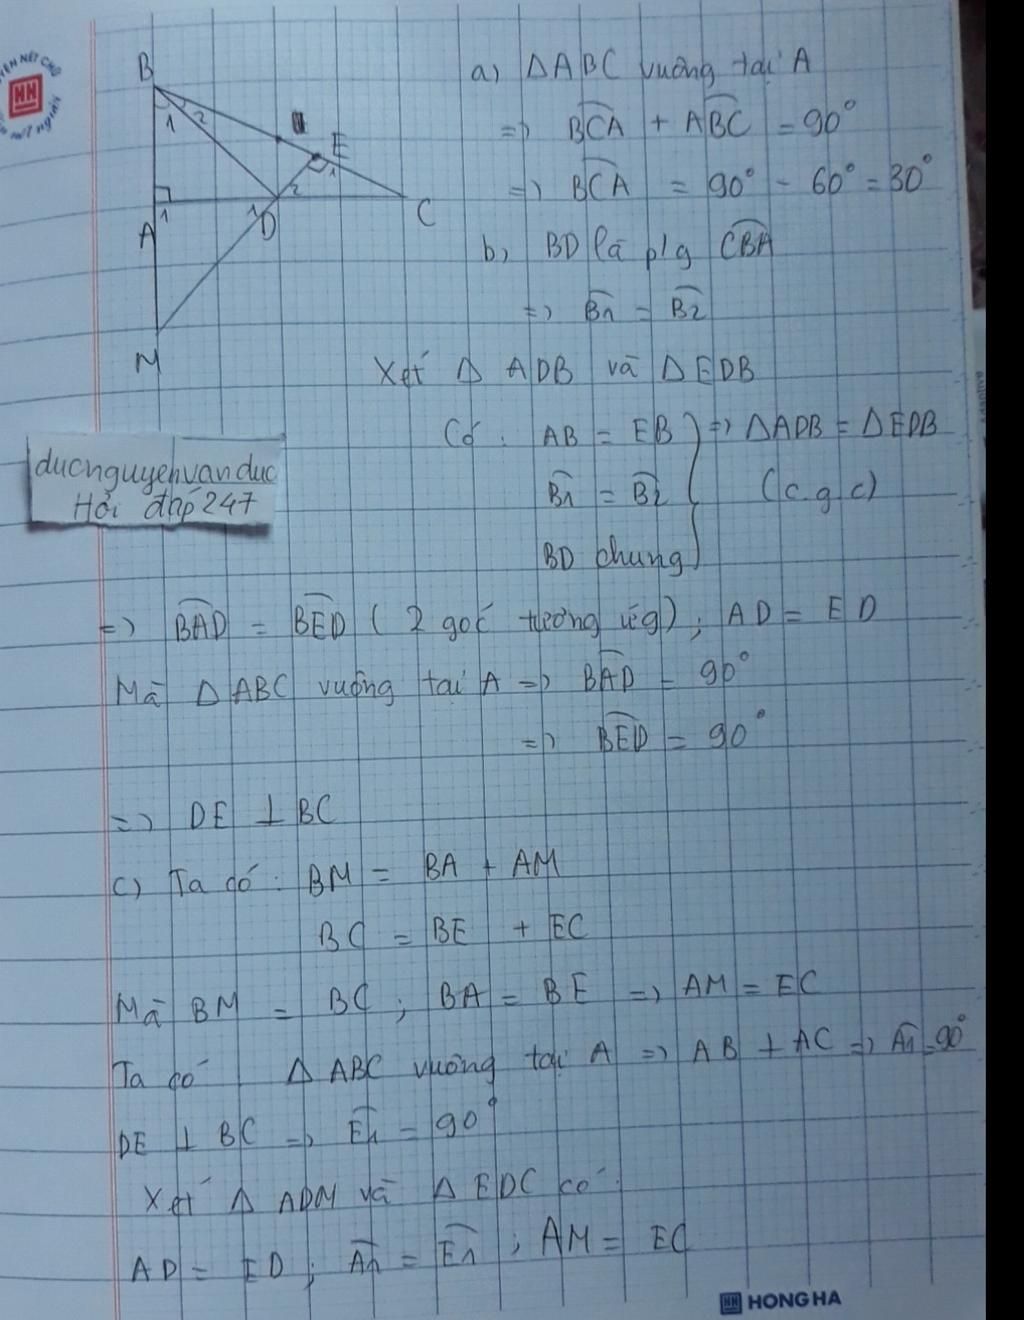 B
1
2
E
1
2
1
1
D
C
A
M
a) ΔABC vuông tại A
=> B͡CA + A͡BC = 90°
=> B͡CA = 90° - 60° = 30°
b) BD là p/g C͡BA
=> B͡1 = B͡2
Xét Δ ADB và ΔEDB
Có: AB = EB } => ΔADB = ΔEDB
B͡1 = B͡2 (c.g.c)
BD chung
ducnguyenvanduc
Hỏi đáp 247
=> B͡AD = B͡ED (2 góc tương ứg); AD = ED
Mà ΔABC vuông tại A => B͡AD = 90°
=> B͡ED = 90°
=> DE ⊥ BC
c) Ta có: BM = BA + AM
BC = BE + EC
Mà BM = BC; BA = BE => AM = EC
Ta có Δ ABC vuông tại A => AB ⊥ AC => A͡1 = 90°
DE ⊥ BC => E͡1 = 90°
Xét Δ ADM và Δ EDC có:
AD = ED; A͡1 = E͡1; AM = EC
HH HONG HA